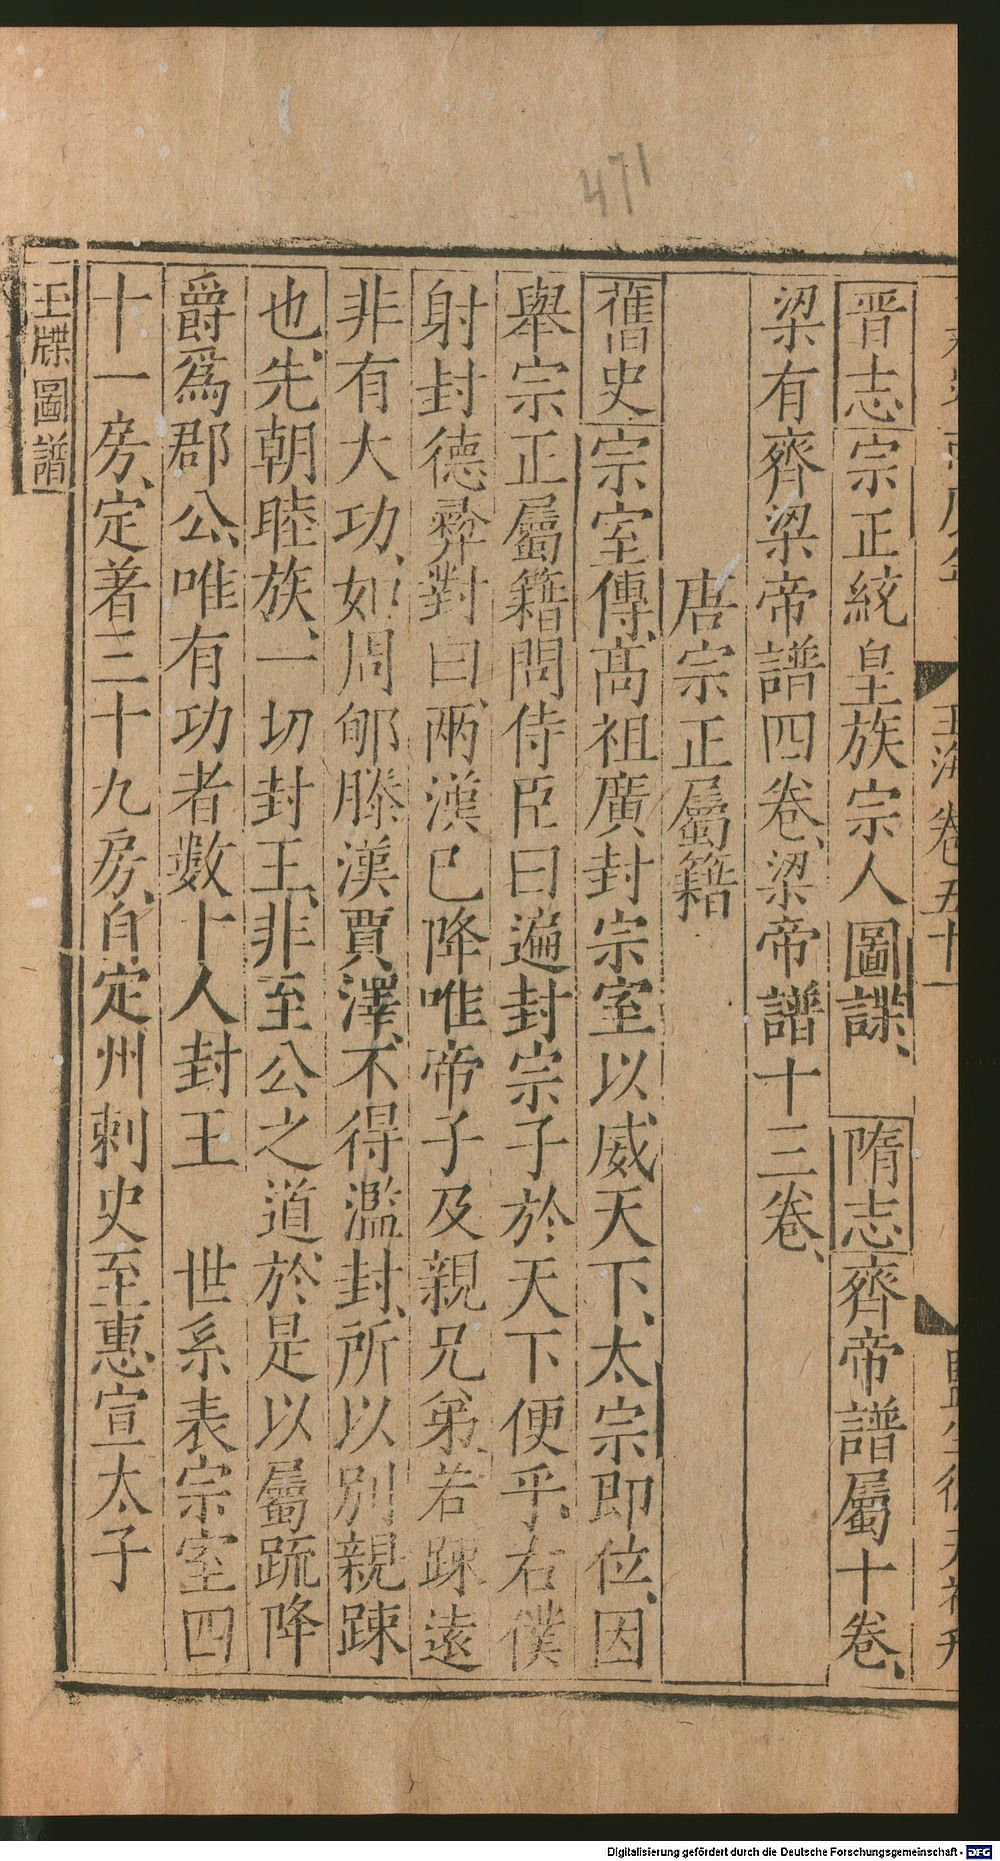 471
玉海卷五十一
晋志宗正統皇族宗人圖諜、隋志齊帝譜屬十卷、
梁有齊梁帝譜四卷、梁帝譜十三卷、
唐宗正屬籍
舊史宗室傳、高祖廣封宗室以威天下、太宗即位、因
舉宗正屬籍問侍臣曰遍封宗子於天下便乎、右僕
射封德彝對曰、兩漢已降唯帝子及親兄弟、若踈遠
非有大功、如周郇滕漢賈澤、不得濫封、所以別親踈
也、先朝睦族、一切封王、非至公之道、於是以屬疏降
爵爲郡公、唯有功者數十人封王 世系表宗室四
十一房、定著三十九房、自定州刺史至惠宣太子
玉牒圖譜
Digitalisierung gefördert durch die Deutsche Forschungsgemeinschaft - DFG